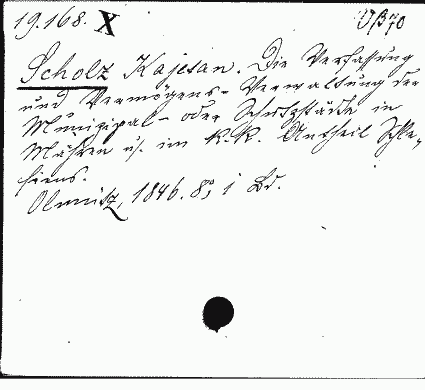 19.168. X Vβ70
Scholz Kajetan. Die Verfassung
und Vermögens- Verwaltung der
Munizipal- oder Schutzstädte in
Mähren u. im k.k. Antheil Schle-
siens.
Olmütz, 1846. 8°, 1 Bd.